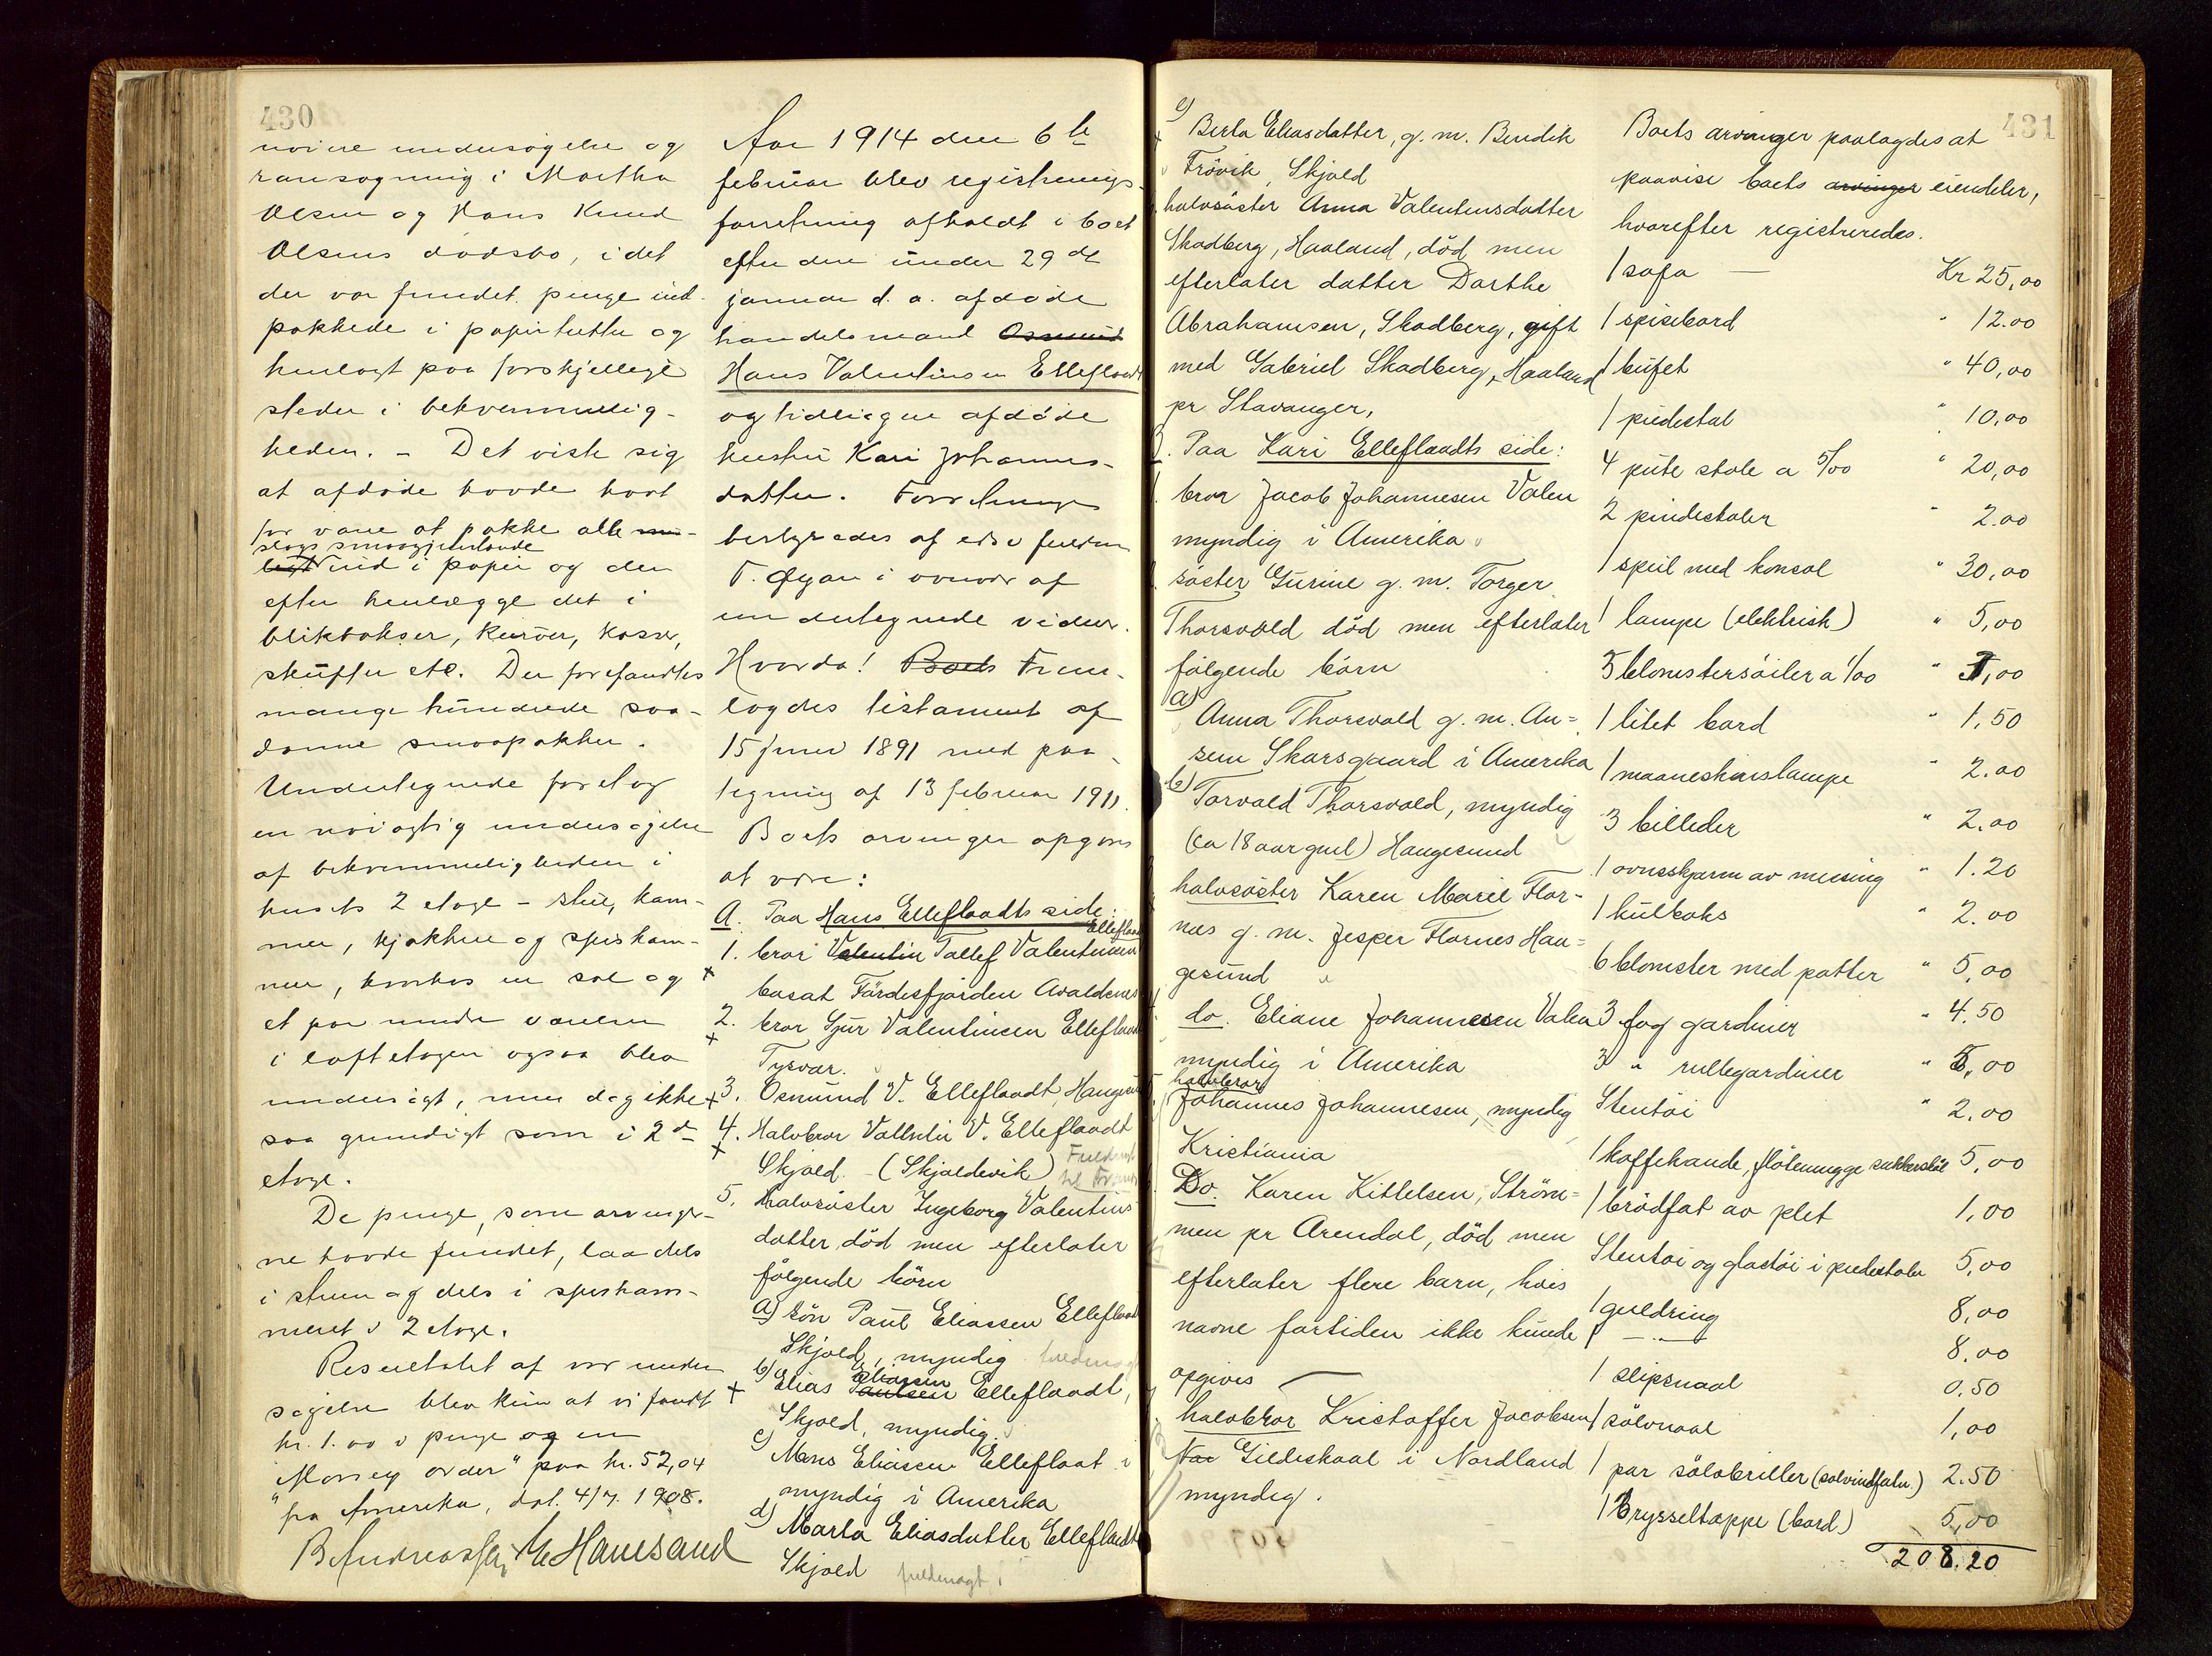 430
nöiere undersøgelse og
ransagning i Martha
Olsen og Hans Knud
Olsens dødsbo, idet
der var fundet penge ind-
pakkede i papirtutter og
henlagt paa forskjellige
steder i bekvemmelig-
heden. – Det viste sig
at afdøde havde havt
for vane at pakke alle
slags smaagjenstande
ind i papir og der
efter henlægge det i
blikbokser, kurver, kasser,
skuffer etc. Der forefandtes
mange hundrede saa-
danne smaapakker.
Undertegnede foretog
en nöiagtig undersøgelse
af bekvemmeligheden i
husets 2 etage – stue, kam-
mer, kjøkken og spiskam-
mer, hvorhos en sal og
et par mindre værelser
i loftetagen ogsaa blev
undersøgt, men dog ikke
saa grundigt som i 2den
etage.
De penge, som arvinger-
ne havde fundet, laa dels
i stuen og dels i spiskam-
meret i 2 etage.
Resultatet af vor under
søgelse blev kun at vi fandt
kr. 1.00 i penge og en
"Money order" paa kr. 52,04
fra Amerika, dat. 4/7. 1908.
B Andreassen E Hausand
Aar 1914 den 6te
februar blev registrerings-
forretning afholdt i boet
efter den under 29de
januar d. a. afdøde
handelsmand Osmund
Hans Valentinsen Elleflaadt
og tidligere afdøde
hustru Kari Johannes-
datter. Forretningen
bestyredes af edsv fuldm
T. Øyan i overvær af
undertegnede vidner.
Hvorda! Boets Frem-
lagdes testament af
15 juni 1891 med paa-
tegning af 13 februar 1911.
Boets arvinger opgaves
at være:
A. Paa Hans Elleflaadts side:
1. bror Valentin Tollef Valentinsen Elleflaadt
bosat Førdesfjorden Avaldsnes
2. bror Sjur Valentinsen Elleflaadt
Tysvær.
3. Osmund V. Elleflaadt, Haugesund
4. Halvbror Vallentin V. Elleflaadt
Skjold. – (Skjoldevik)
5. Halvsöster Ingeborg Valentins
datter, död men efterlater
fölgende börn
a) sön Paul Eliassen Elleflaadt
Skjold, myndig fuldmagt
b) Elias Paulsen Eliassen Elleflaadt,
Skjold, myndig.
c) Mons Eliassen Elleflaat i
myndig i Amerika
d) Marta Eliasdatter Elleflaadt
Skjold fuldmagt
431
e) Berta Eliasdatter, g. m. Bendik
Frövik, Skjold
halvsöster Anna Valentinsdatter
Skadberg, Haaland, död men
efterlater datter Dorthe
Abrahamsen, Skadberg, gift
med Gabriel Skadberg, Haaland
pr Stavanger,
B. Paa Kari Elleflaadts side:
bror Jacob Johannesen Valen
myndig i Amerika
söster Gurine g. m. Torger
Thorsvold död men efterlater
fölgende börn
a)
Anna Thorsvold g. m. An=
sem Skarsgaard i Amerika
b)
Torvald Thorsvold, myndig
(ca 18 aar gml) Haugesund
halvsöster Karen Marie Flor-
nes g. m. Jesper Flornes Hau=
gesund
do. Eliane Johannesen Valen
myndig i Amerika
halvbror
Johannes Johannesen, myndig
Kristiania
Do. Karen Kittelsen, Ström=
men pr Arendal, död men
efterlater flere barn, hvis
navne fortiden ikke kunde
opgives
halvbror Kristoffer Jacobsen
Gildeskaal i Nordland
myndig.
Boets arvinger paalagdes at
paavise boets arvinger eiendeler,
hvorefter registreredes.
1 sofa — Kr 25,00
1 spisebord " 12.00
1 bufet " 40,00
1 piedestal " 10,00
4 pute stole a 5/00 " 20,00
2 piedestaler " 2.00
1 speil med konsol " 30,00
1 lampe (elektrisk) " 5,00
5 blomstersöiler a 1/00 " 5,00
1 litet bord " 1,50
1 maaneskinslampe " 2.00
3 billeder " 2.00
1 ovnsskjærm av messing " 1.20
1 kulboks " 2.00
6 blomster med potter " 5,00
3 fag gardiner " 4.50
3 " rullegardiner " 5,00
Stentöi " 2.00
1 kaffekande, flötemugge sukkerskål 5,00
1 brödfat av plet 1,00
Stentöi og glastöi i piedestaler 5,00
1 guldring 8,00
1 — " — 8.00
1 slipsnaal 0.50
1 sölvnaal 1,00
1 par sölvbriller (solvindfatn.) 2.50
1 Brysseltæppe (bord) 5,00
208.20